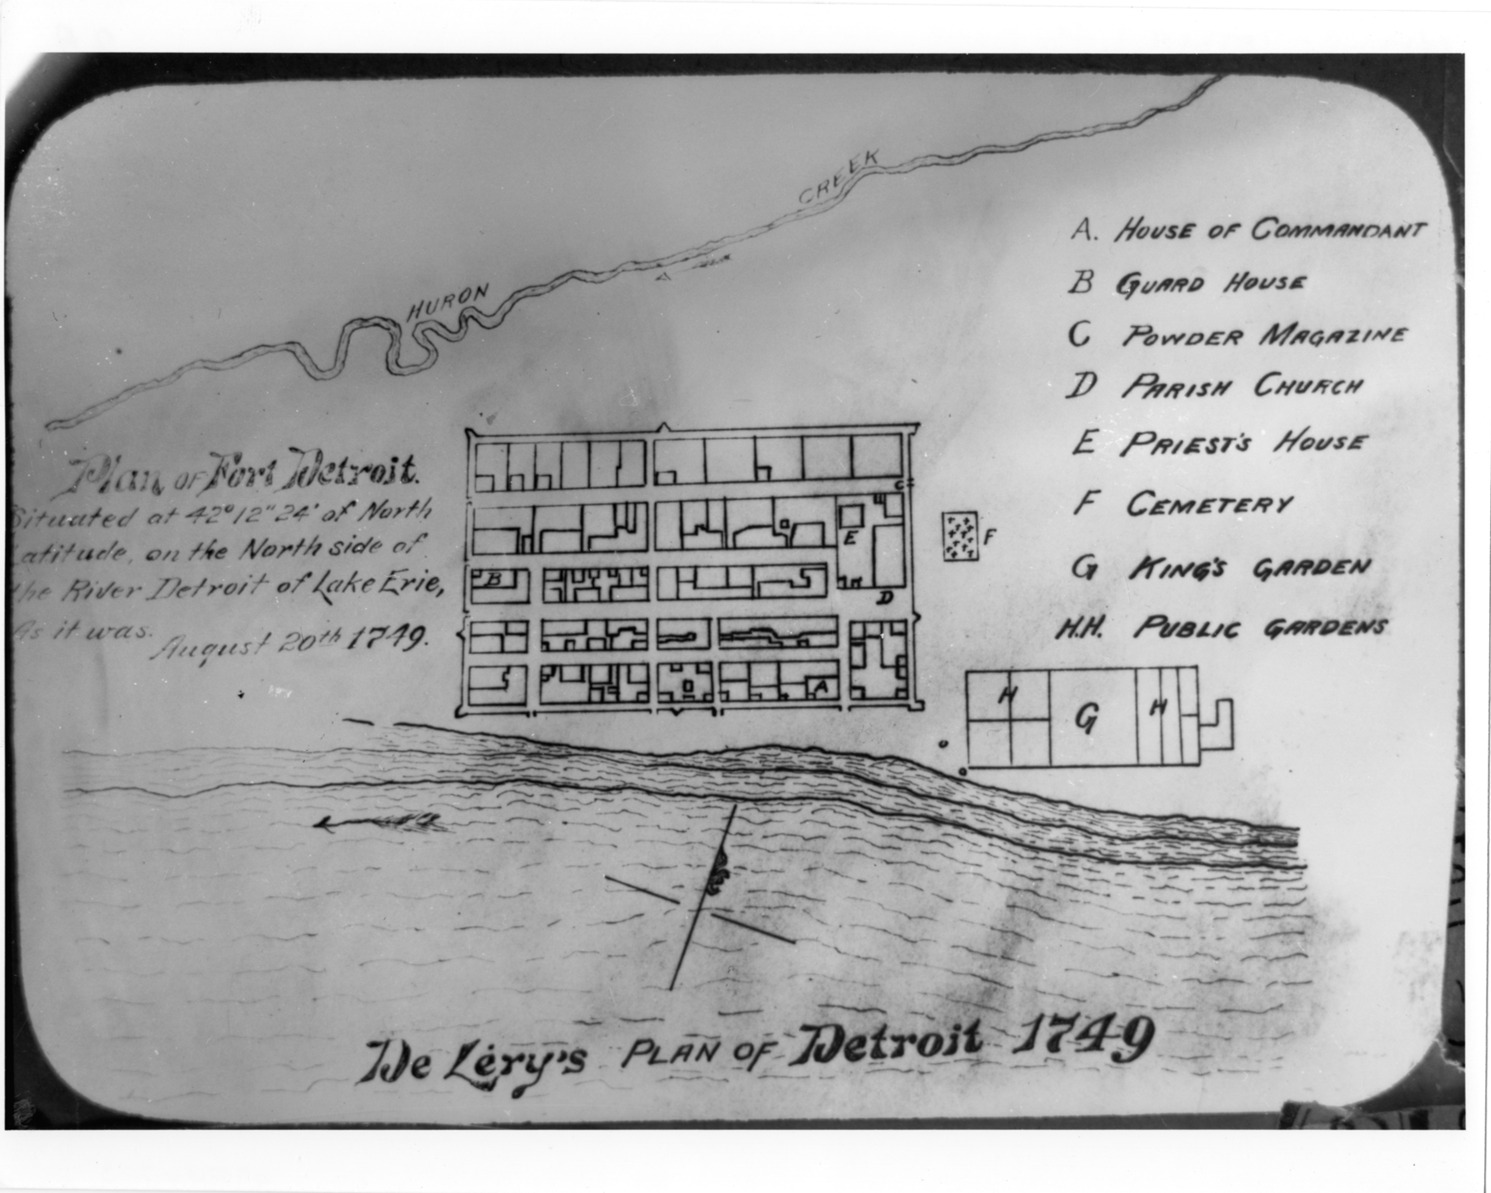 CREEK
HURON
A. HOUSE OF COMMANDANT
B GUARD HOUSE
C POWDER MAGAZINE
D PARISH CHURCH
E PRIEST'S HOUSE
F CEMETERY
G KING'S GARDEN
H.H. PUBLIC GARDENS
Plan OF Fort Detroit.
Situated at 42° 12" 24' of North
Latitude, on the North side of
the River Detroit of Lake Erie,
As it was.
August 20th 1749.
C
E
F
B
D
A
H
G
H
De Léry's PLAN OF Detroit 1749